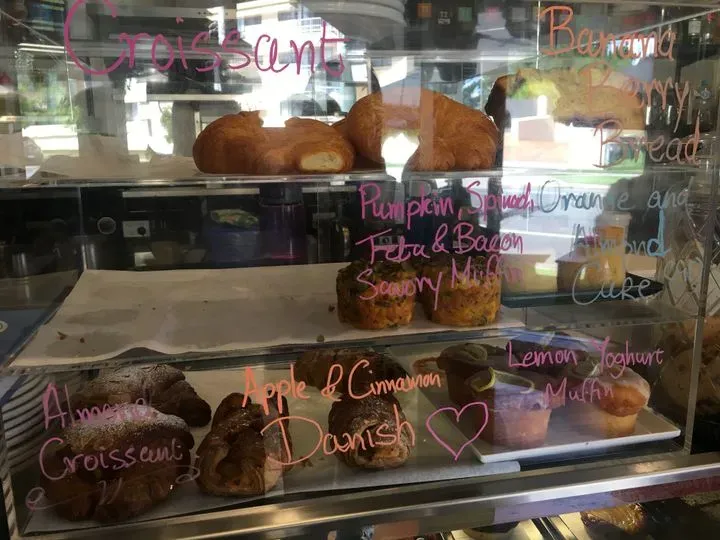 Croissant
Banana
Berry
Bread
Pumpkin, Spinach
Feta & Bacon
Savory Muffin
Orange and
Almond
Cake
Almond
Croissant
Apple & Cinnamon
Danish
Lemon Yoghurt
Muffin